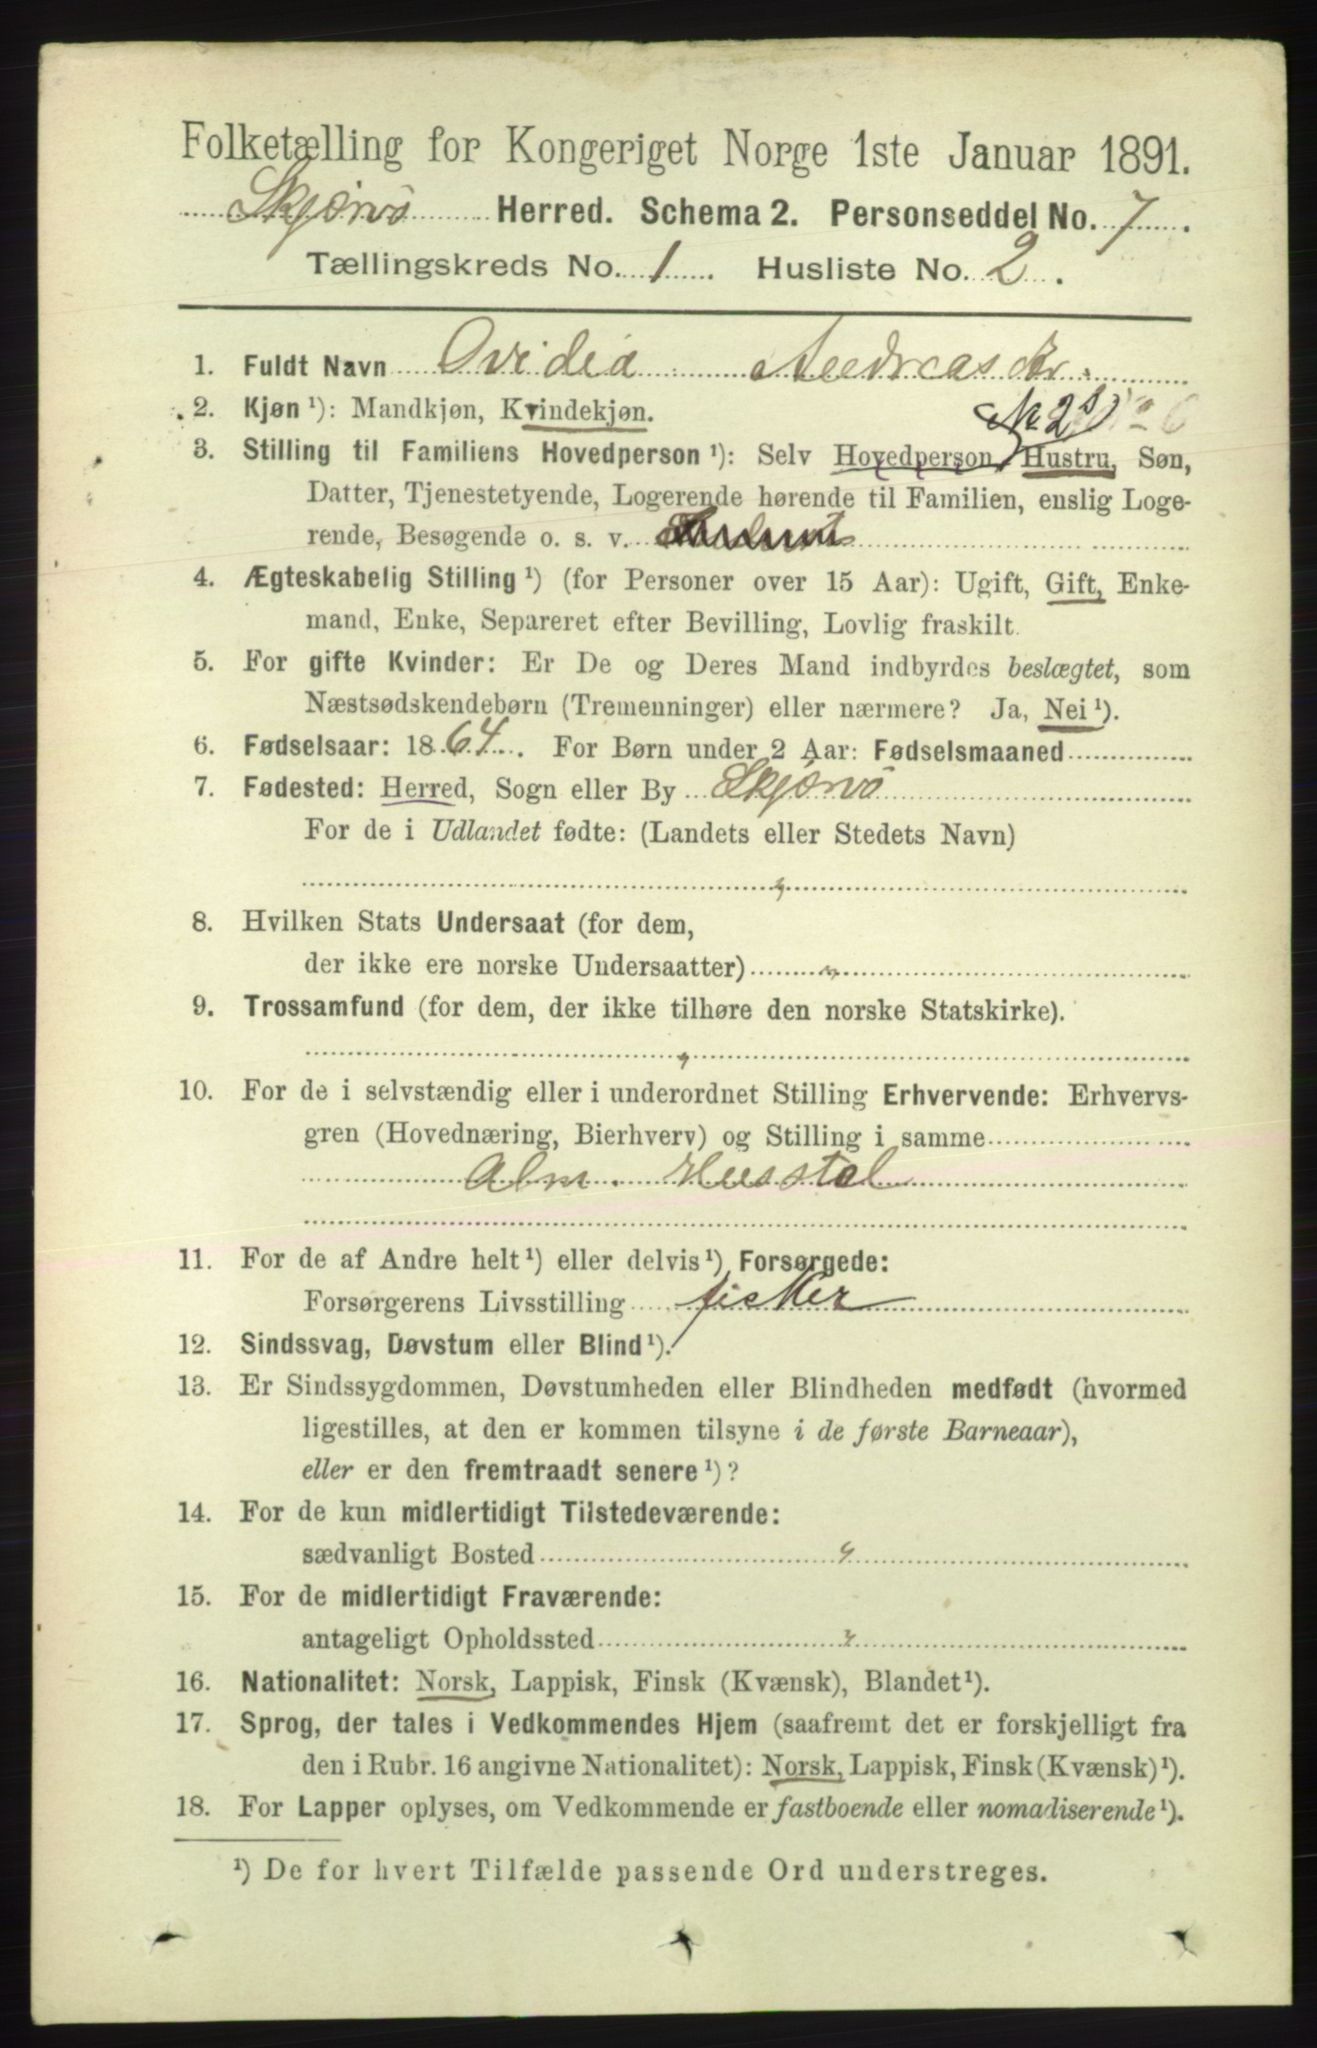 Folketælling for Kongeriget Norge 1ste Januar 1891.
Skjervø Herred. Schema 2. Personseddel No. 7.
Tællingskreds No. 1. Husliste No. 2.
1. Fuldt Navn Ovidia Andreasdtr.
2. Kjøn ¹): Mandkjøn, Kvindekjøn.
3. Stilling til Familiens Hovedperson ¹): Selv Hovedperson, Hustru, Søn,
Datter, Tjenestetyende, Logerende hørende til Familien, enslig Loge-
rende, Besøgende o. s. v.
4. Ægteskabelig Stilling ¹) (for Personer over 15 Aar): Ugift, Gift, Enke-
mand, Enke, Separeret efter Bevilling, Lovlig fraskilt.
5. For gifte Kvinder: Er De og Deres Mand indbyrdes beslægtet, som
Næstsødskendebørn (Tremenninger) eller nærmere? Ja, Nei ¹).
6. Fødselsaar: 1864. For Børn under 2 Aar: Fødselsmaaned
7. Fødested: Herred, Sogn eller By Skjervø
For de i Udlandet fødte: (Landets eller Stedets Navn)
8. Hvilken Stats Undersaat (for dem,
der ikke ere norske Undersaatter)
9. Trossamfund (for dem, der ikke tilhøre den norske Statskirke).
10. For de i selvstændig eller i underordnet Stilling Erhvervende: Erhvervs-
gren (Hovednæring, Bierhverv) og Stilling i samme
Alm. Husstel
11. For de af Andre helt ¹) eller delvis ¹) Forsørgede:
Forsørgerens Livsstilling fisker
12. Sindssvag, Døvstum eller Blind ¹).
13. Er Sindssygdommen, Døvstumheden eller Blindheden medfødt (hvormed
ligestilles, at den er kommen tilsyne i de første Barneaar),
eller er den fremtraadt senere ¹)?
14. For de kun midlertidigt Tilstedeværende:
sædvanligt Bosted
15. For de midlertidigt Fraværende:
antageligt Opholdssted
16. Nationalitet: Norsk, Lappisk, Finsk (Kvænsk), Blandet ¹).
17. Sprog, der tales i Vedkommendes Hjem (saafremt det er forskjelligt fra
den i Rubr. 16 angivne Nationalitet): Norsk, Lappisk, Finsk (Kvænsk) ¹).
18. For Lapper oplyses, om Vedkommende er fastboende eller nomadiserende ¹).
¹) De for hvert Tilfælde passende Ord understreges.